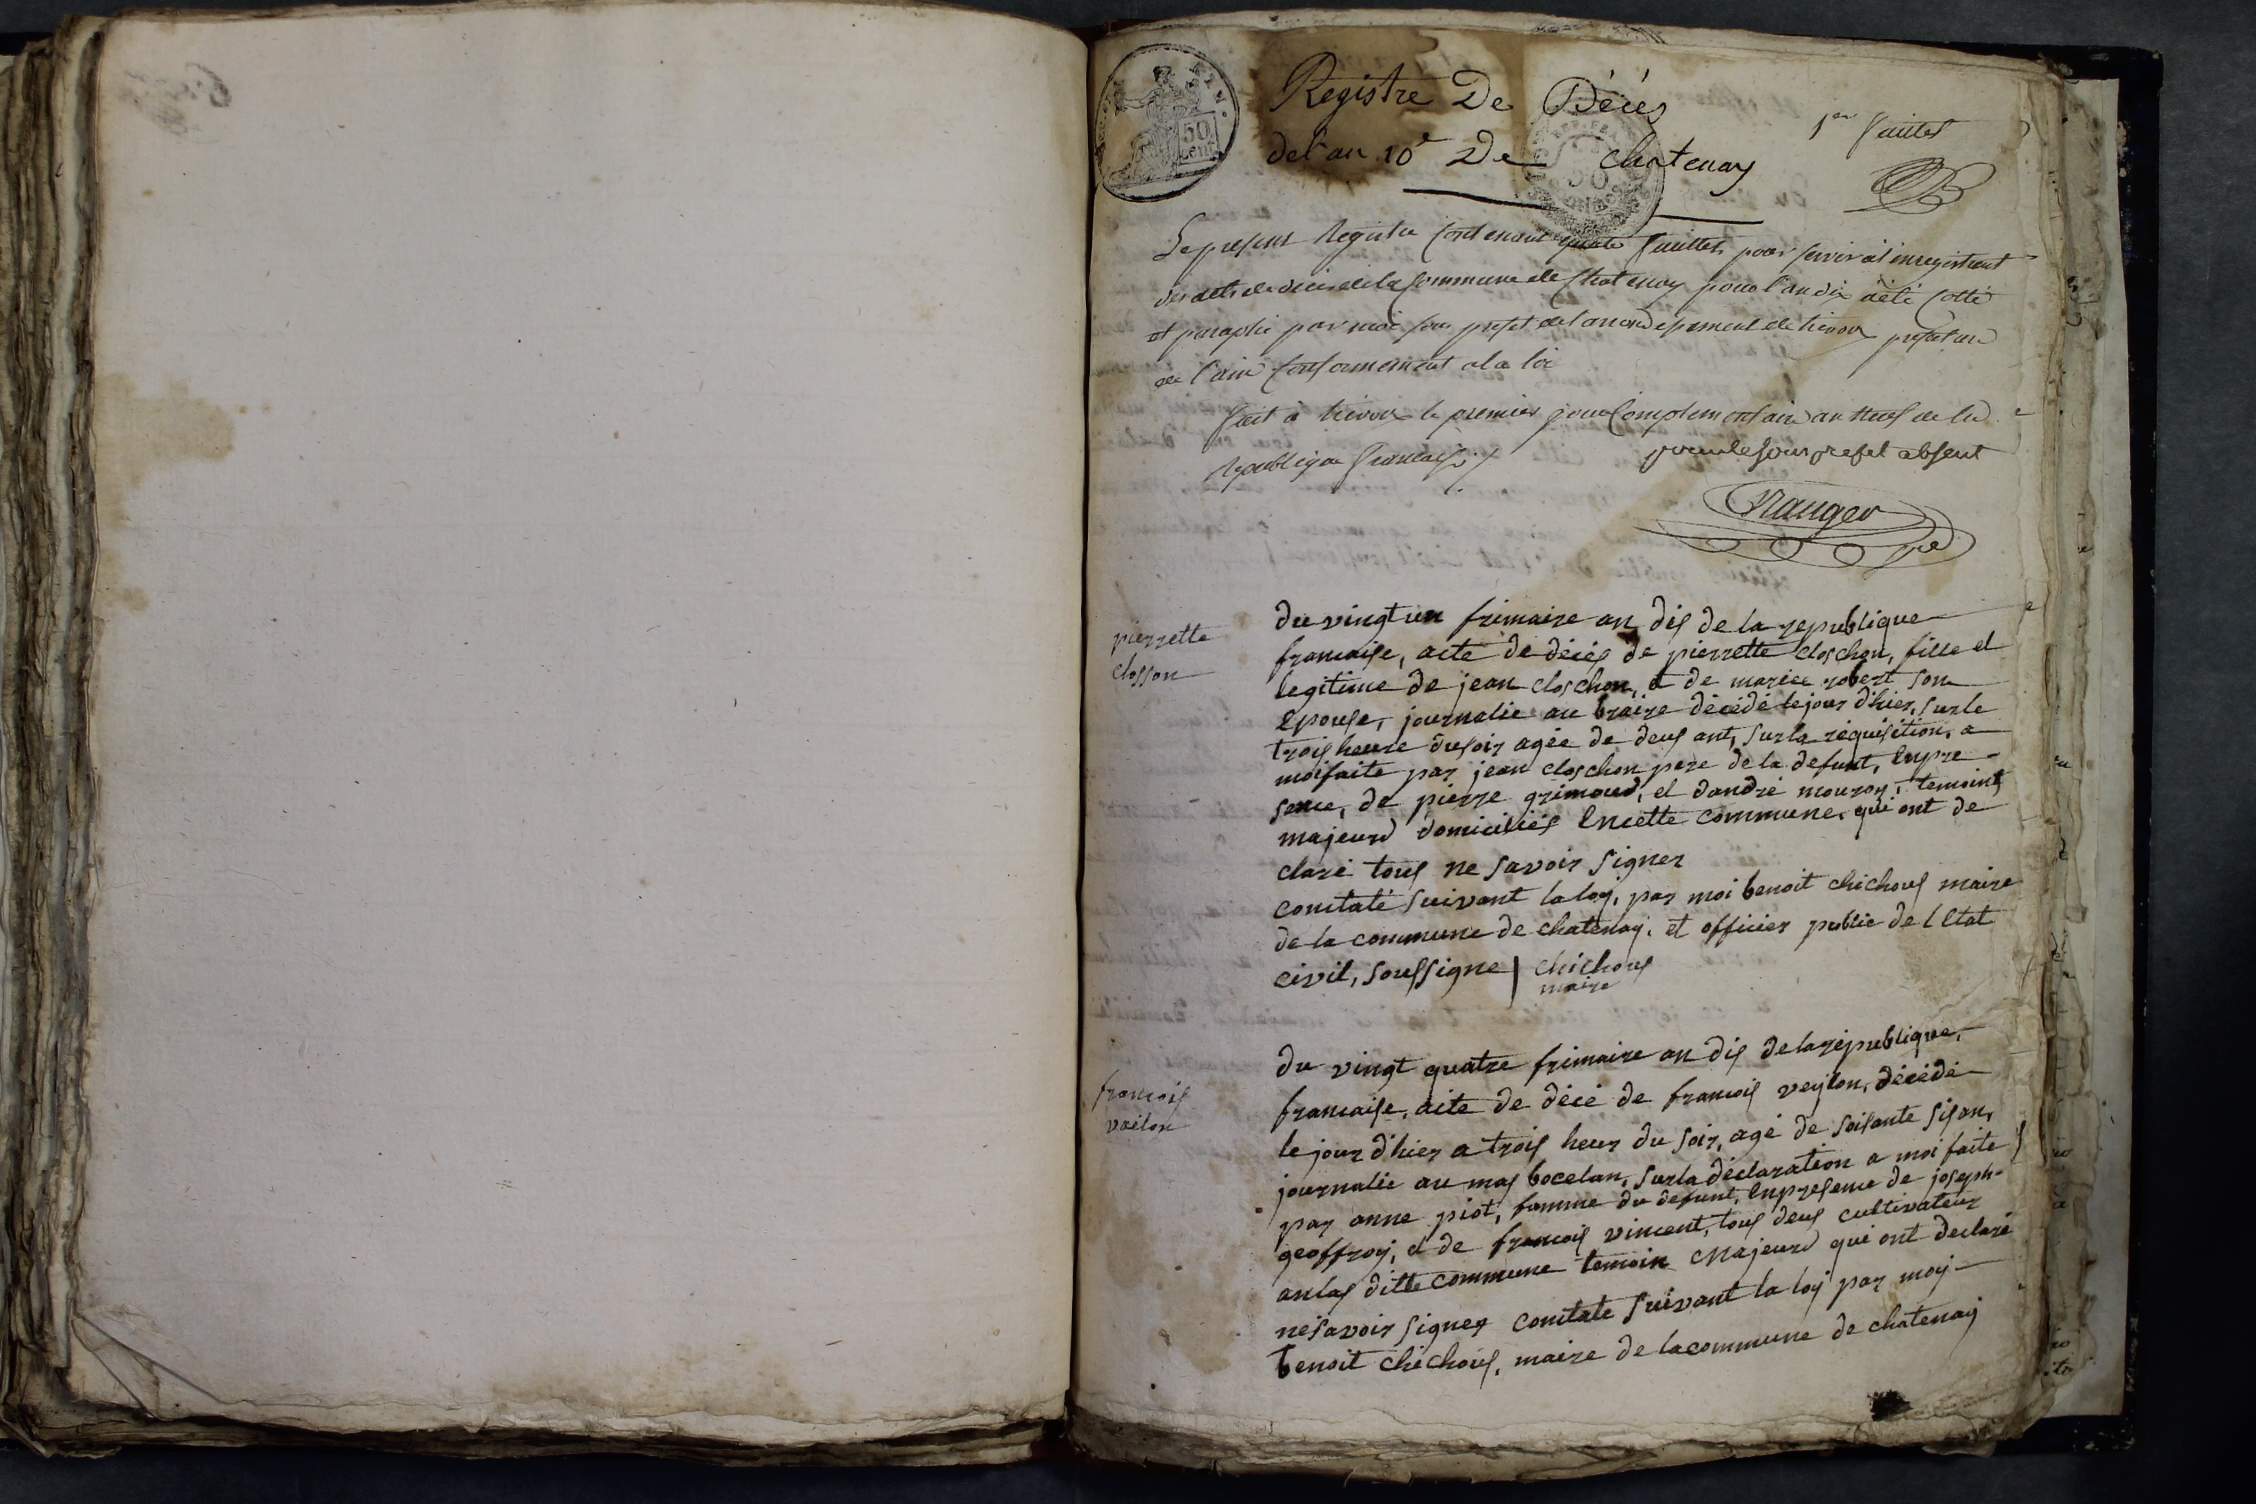 Registre De Décès
del'an 10e De chatenay
1er feuillet
50
cent
Le present Registre Contenant quatre feuillets pour servir à l'enregistrement
des actes de décès de la Commune de Chatenay pour l'an dix a été Cotté
et paraphé par moi sous prefet de l'arrondissement de trevoux prefecture
de l'ain Conformement a la loi
fait à trevoux le premier jour Complementaire an neuf de la
republique française
pour le sous prefet absent
pierrette
closson
du vingt un frimaire an dis de la republique
francaise, acte de décés de pierrette closchon, fille el
legitime de jean closchon, et de mariee robert son
epouse, journalie au braire décédé le jour d'hier, sur le
trois heure du soir agée de deus ant, sur la réquisition, a
moi faite par jean closchon pere de la defunt, enpre-
sence, de pierre grimoud, et dandré mouron, temoint
majeurd domiciliés en cette commune, qui ont de
claré tous ne savoir signer
constaté suivant la loy, par moi benoit chichous maire
de la commune de chatenay, et officier public de l Etat
civil, soussigne | chichous
maire
francois
vailon
du vingt quatre frimaire an dis de la république,
francaise, acte de décé de francois veylon, décédé
le jour d'hier a trois heur du soir, agé de soisante sis an,
journalie au mas bocelan, sur la déclaration a moi faite
par anne piot, famme du defunt, enpresence de joseph-
geoffroy, et de francois vincent, tous deus cultivateur
an las ditte commune temoin Majeurd qui ont declaré
ne savoir signer constate suivant la loy par moy
benoit chichous, maire de la commune de chatenay